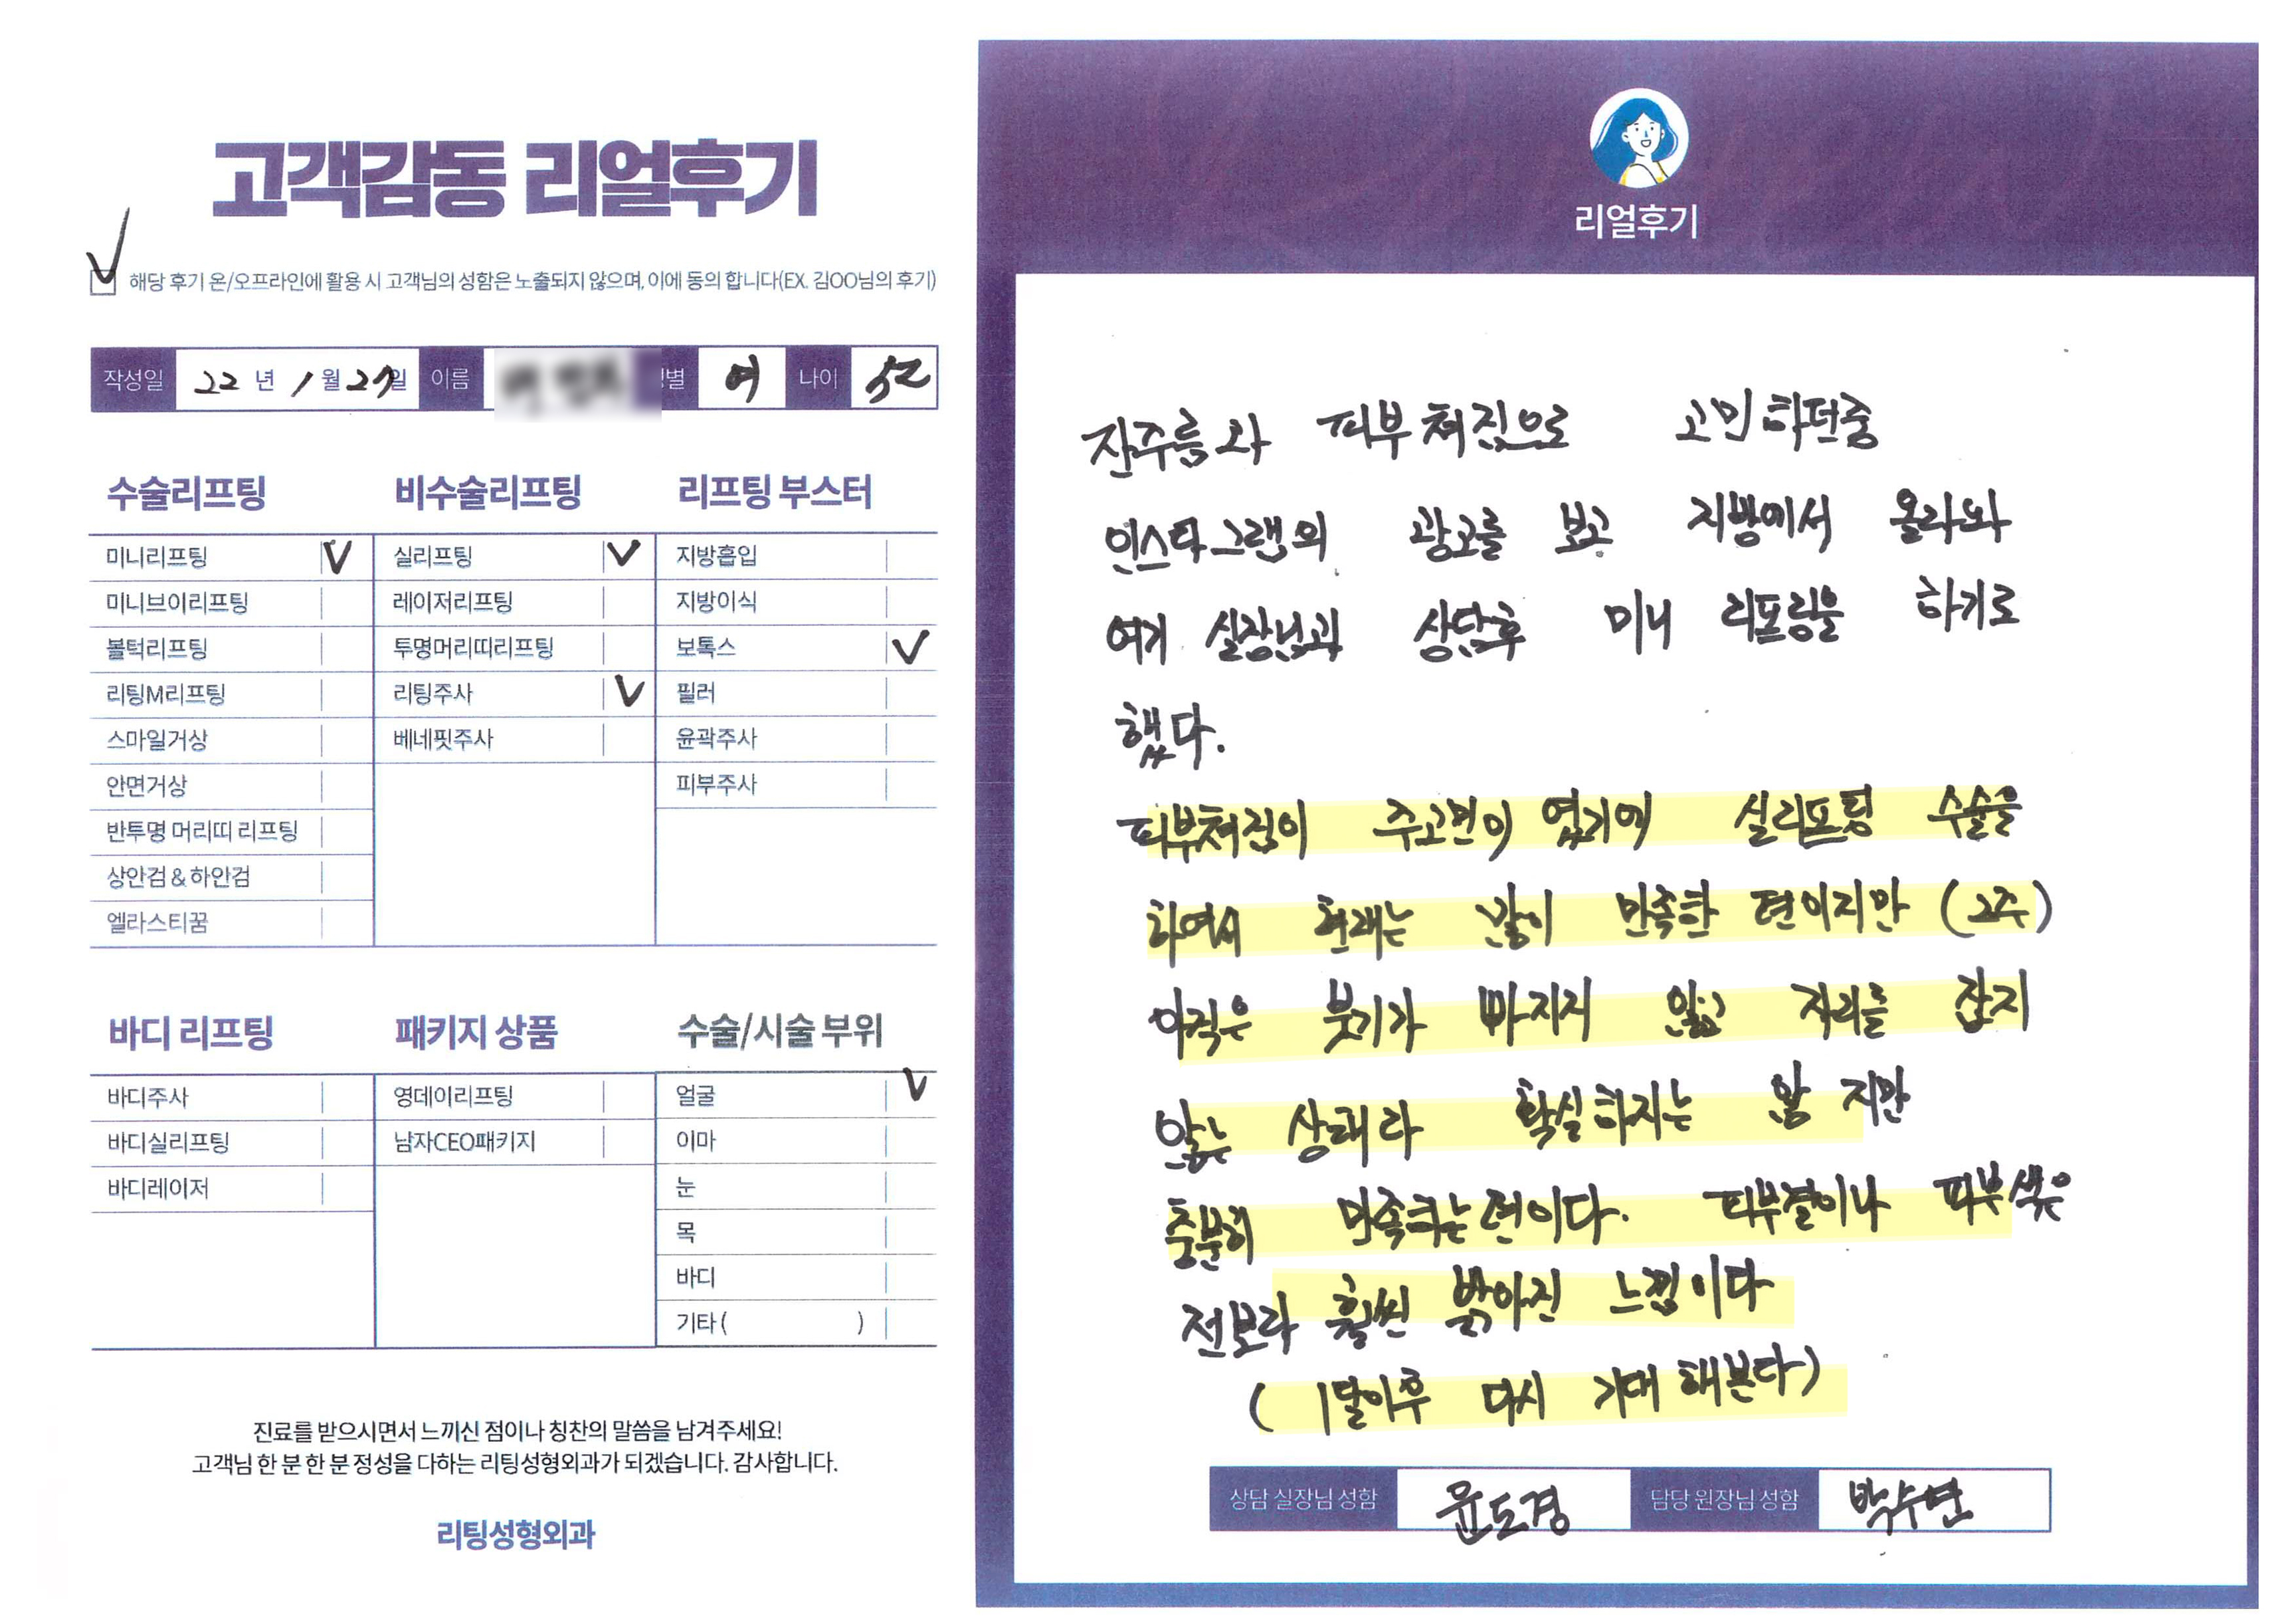 고객감동 리얼후기
해당 후기 온/오프라인에 활용 시 고객님의 성함은 노출되지 않으며, 이에 동의 합니다(EX. 김OO님의 후기)
작성일 22 년 1 월 27 일 이름 별 여 나이 52
수술리프팅
미니리프팅 V
미니브이리프팅
볼턱리프팅
리팅M리프팅
스마일거상
안면거상
반투명 머리띠 리프팅
상안검 & 하안검
엘라스티꿈
비수술리프팅
실리프팅 V
레이저리프팅
투명머리띠리프팅
리팅주사 V
베네핏주사
리프팅 부스터
지방흡입
지방이식
보톡스 V
필러
윤곽주사
피부주사
바디 리프팅
바디주사
바디실리프팅
바디레이저
패키지 상품
영데이리프팅
남자CEO패키지
수술/시술 부위
얼굴 V
이마
눈
목
바디
기타 ( )
진료를 받으시면서 느끼신 점이나 칭찬의 말씀을 남겨주세요!
고객님 한 분 한 분 정성을 다하는 리팅성형외과가 되겠습니다. 감사합니다.
리팅성형외과
리얼후기
잔주름과 피부쳐짐으로 고민하던중
인스타그램의 광고를 보고 지방에서 올라와
여기 실장님과 상담후 미니 리프팅을 하기로
했다.
피부쳐짐이 주고민이 였기에 실리프팅 수술을
하여서 현재는 많이 만족한 편이지만 (2주)
아직은 붓기가 빠지지 않고 자리를 잡지
않는 상태라 확실하지는 않지만
충분히 만족하는편이다. 피부결이나 피부색은
전보다 훨씬 밝아진 느낌이다
( 1달이후 다시 기대해본다)
상담 실장님 성함 윤도경 담당 원장님 성함 박수연